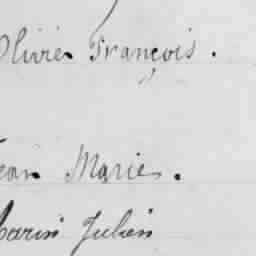 Olivier François.
Jean Marie.
Marin Julien